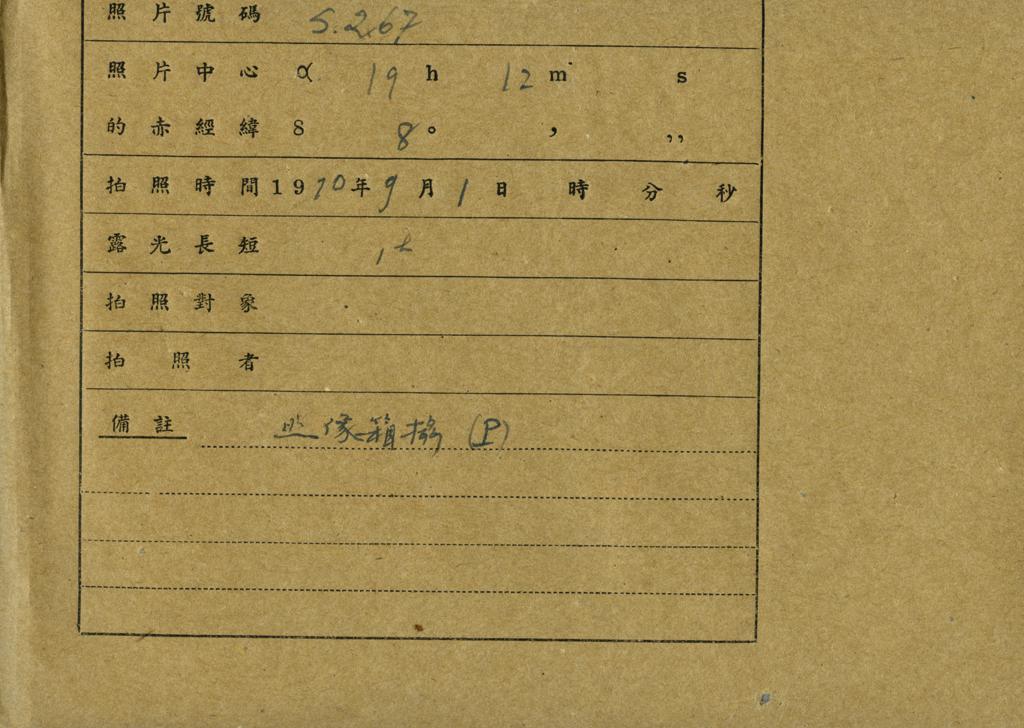 照片號碼 S.267
照片中心 α 19 h 12 m s
的赤經緯 δ 8 ° ′ ″
拍照時間 1970年9月1日 時 分 秒
露光長短 1h
拍照對象
拍照者
備註 照像箱 (P)